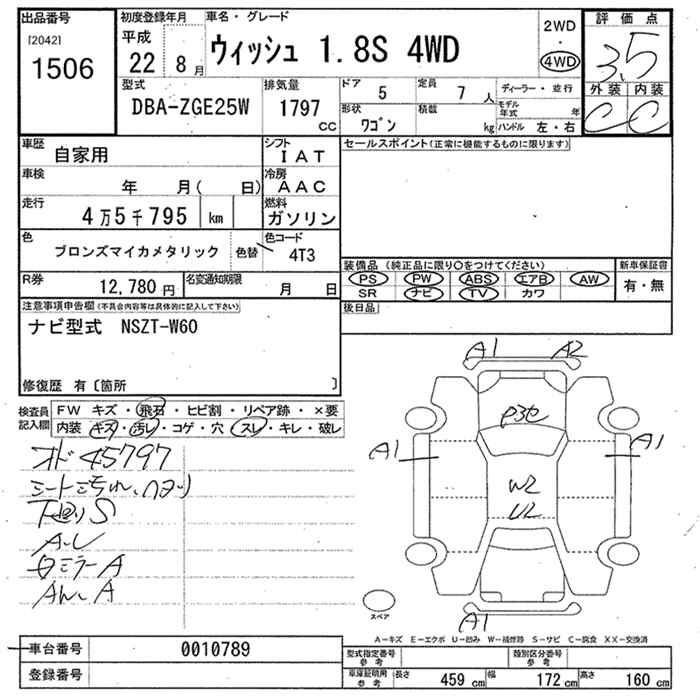 出品番号 初度登録年月 車名・グレード 2WD 評価点
[2042] 平成 ウィッシュ 1.8S 4WD 4WD 3.5
1506 22 8月 外装 内装
型式 排気量 ドア 5 定員 7人 ディーラー・並行 C C
DBA-ZGE25W 1797 cc 形状 ワゴン 積載 kg モデル年式 年
ハンドル 左・右
車歴 自家用 シフト IAT セールスポイント(正常に機能するものに限ります)
車検 年 月( 日) 冷房 AAC
走行 4万5千795 km 燃料 ガソリン
色 ブロンズマイカメタリック 色替 色コード 4T3
装備品 (純正品に限り○をつけてください) 新車保証書
R券 12,780円 名変通知期限 月 日 PS PW ABS エアB AW 有・無
SR ナビ TV カワ
注意事項申告欄(不具合内容等は具体的に記入して下さい) 後日品
ナビ型式 NSZT-W60
修復歴 有〔箇所 〕
検査員記入欄 FW キズ・飛石・ヒビ割・リペア跡・×要
内装 キズ・汚レ・コゲ・穴・スレ・キレ・破レ
A1 A2
オド 45797
A1 A1
下廻りS
W2
U2
ミラーA
A1
スペア
A-キズ E-エクボ U-凹み W-補修跡 S-サビ C-腐食 XX-交換済
車台番号 0010789 型式指定番号 参考 類別区分番号 参考
登録番号 車庫証明用 参考 長さ 459 cm 幅 172 cm 高さ 160 cm